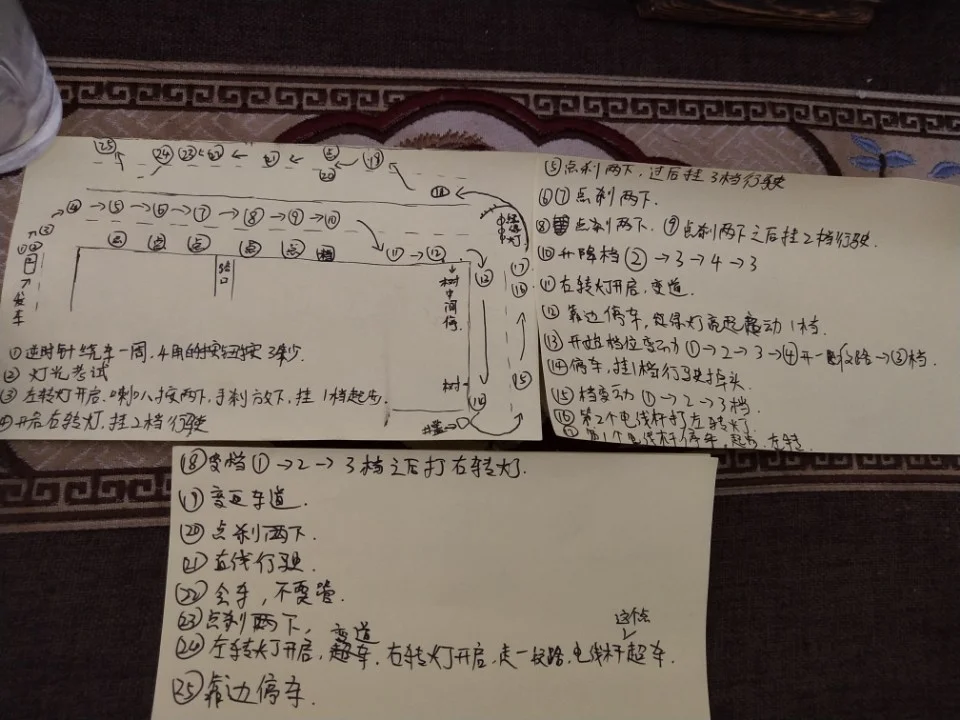 ㉕ ㉔ ㉓ ← ㉒ ← ㉑ ← 点 ⑳ ⑲
⑱
④ → ⑤ → ⑥ → ⑦ → ⑧ → ⑨ → ⑩
① ② ③
点 点 点 点 点
路口
⑪ → ⑫
树中间停
红绿灯
⑬ ⑰ ⑯
发车
树
⑭ ⑮
① 逆时针绕车一周,4角的按钮按3秒.
② 灯光考试
③ 左转灯开启.喇叭按两下,手刹放下,挂1档起步.
④ 开启右转灯,挂2档行驶
⑤ 点刹两下,过后挂3档行驶
⑥⑦ 点刹两下.
⑧ 点刹两下. ⑨ 点刹两下之后挂2档行驶.
⑩ 升降档 ② → 3 → 4 → 3
⑪ 右转灯开启,变道.
⑫ 靠边停车,灯亮起 动1档.
⑬ 开始档位变动 ① → 2 → 3 → ④ 开一段路 → ③档.
⑭ 停车,挂1档行驶掉头.
⑮ 档变动 ① → 2 → 3档.
⑯ 第2个电线杆打左转灯
第1个电线杆停车,起步,左转
⑱ 变档 ① → 2 → 3档之后打右转灯.
⑲ 变更车道.
⑳ 点刹两下.
㉑ 直线行驶.
㉒ 会车,不要管.
㉓ 点刹两下,
变道 这个点
㉔ 左转灯开启,超车,右转灯开启,走一段路,电线杆超车.
㉕ 靠边停车.